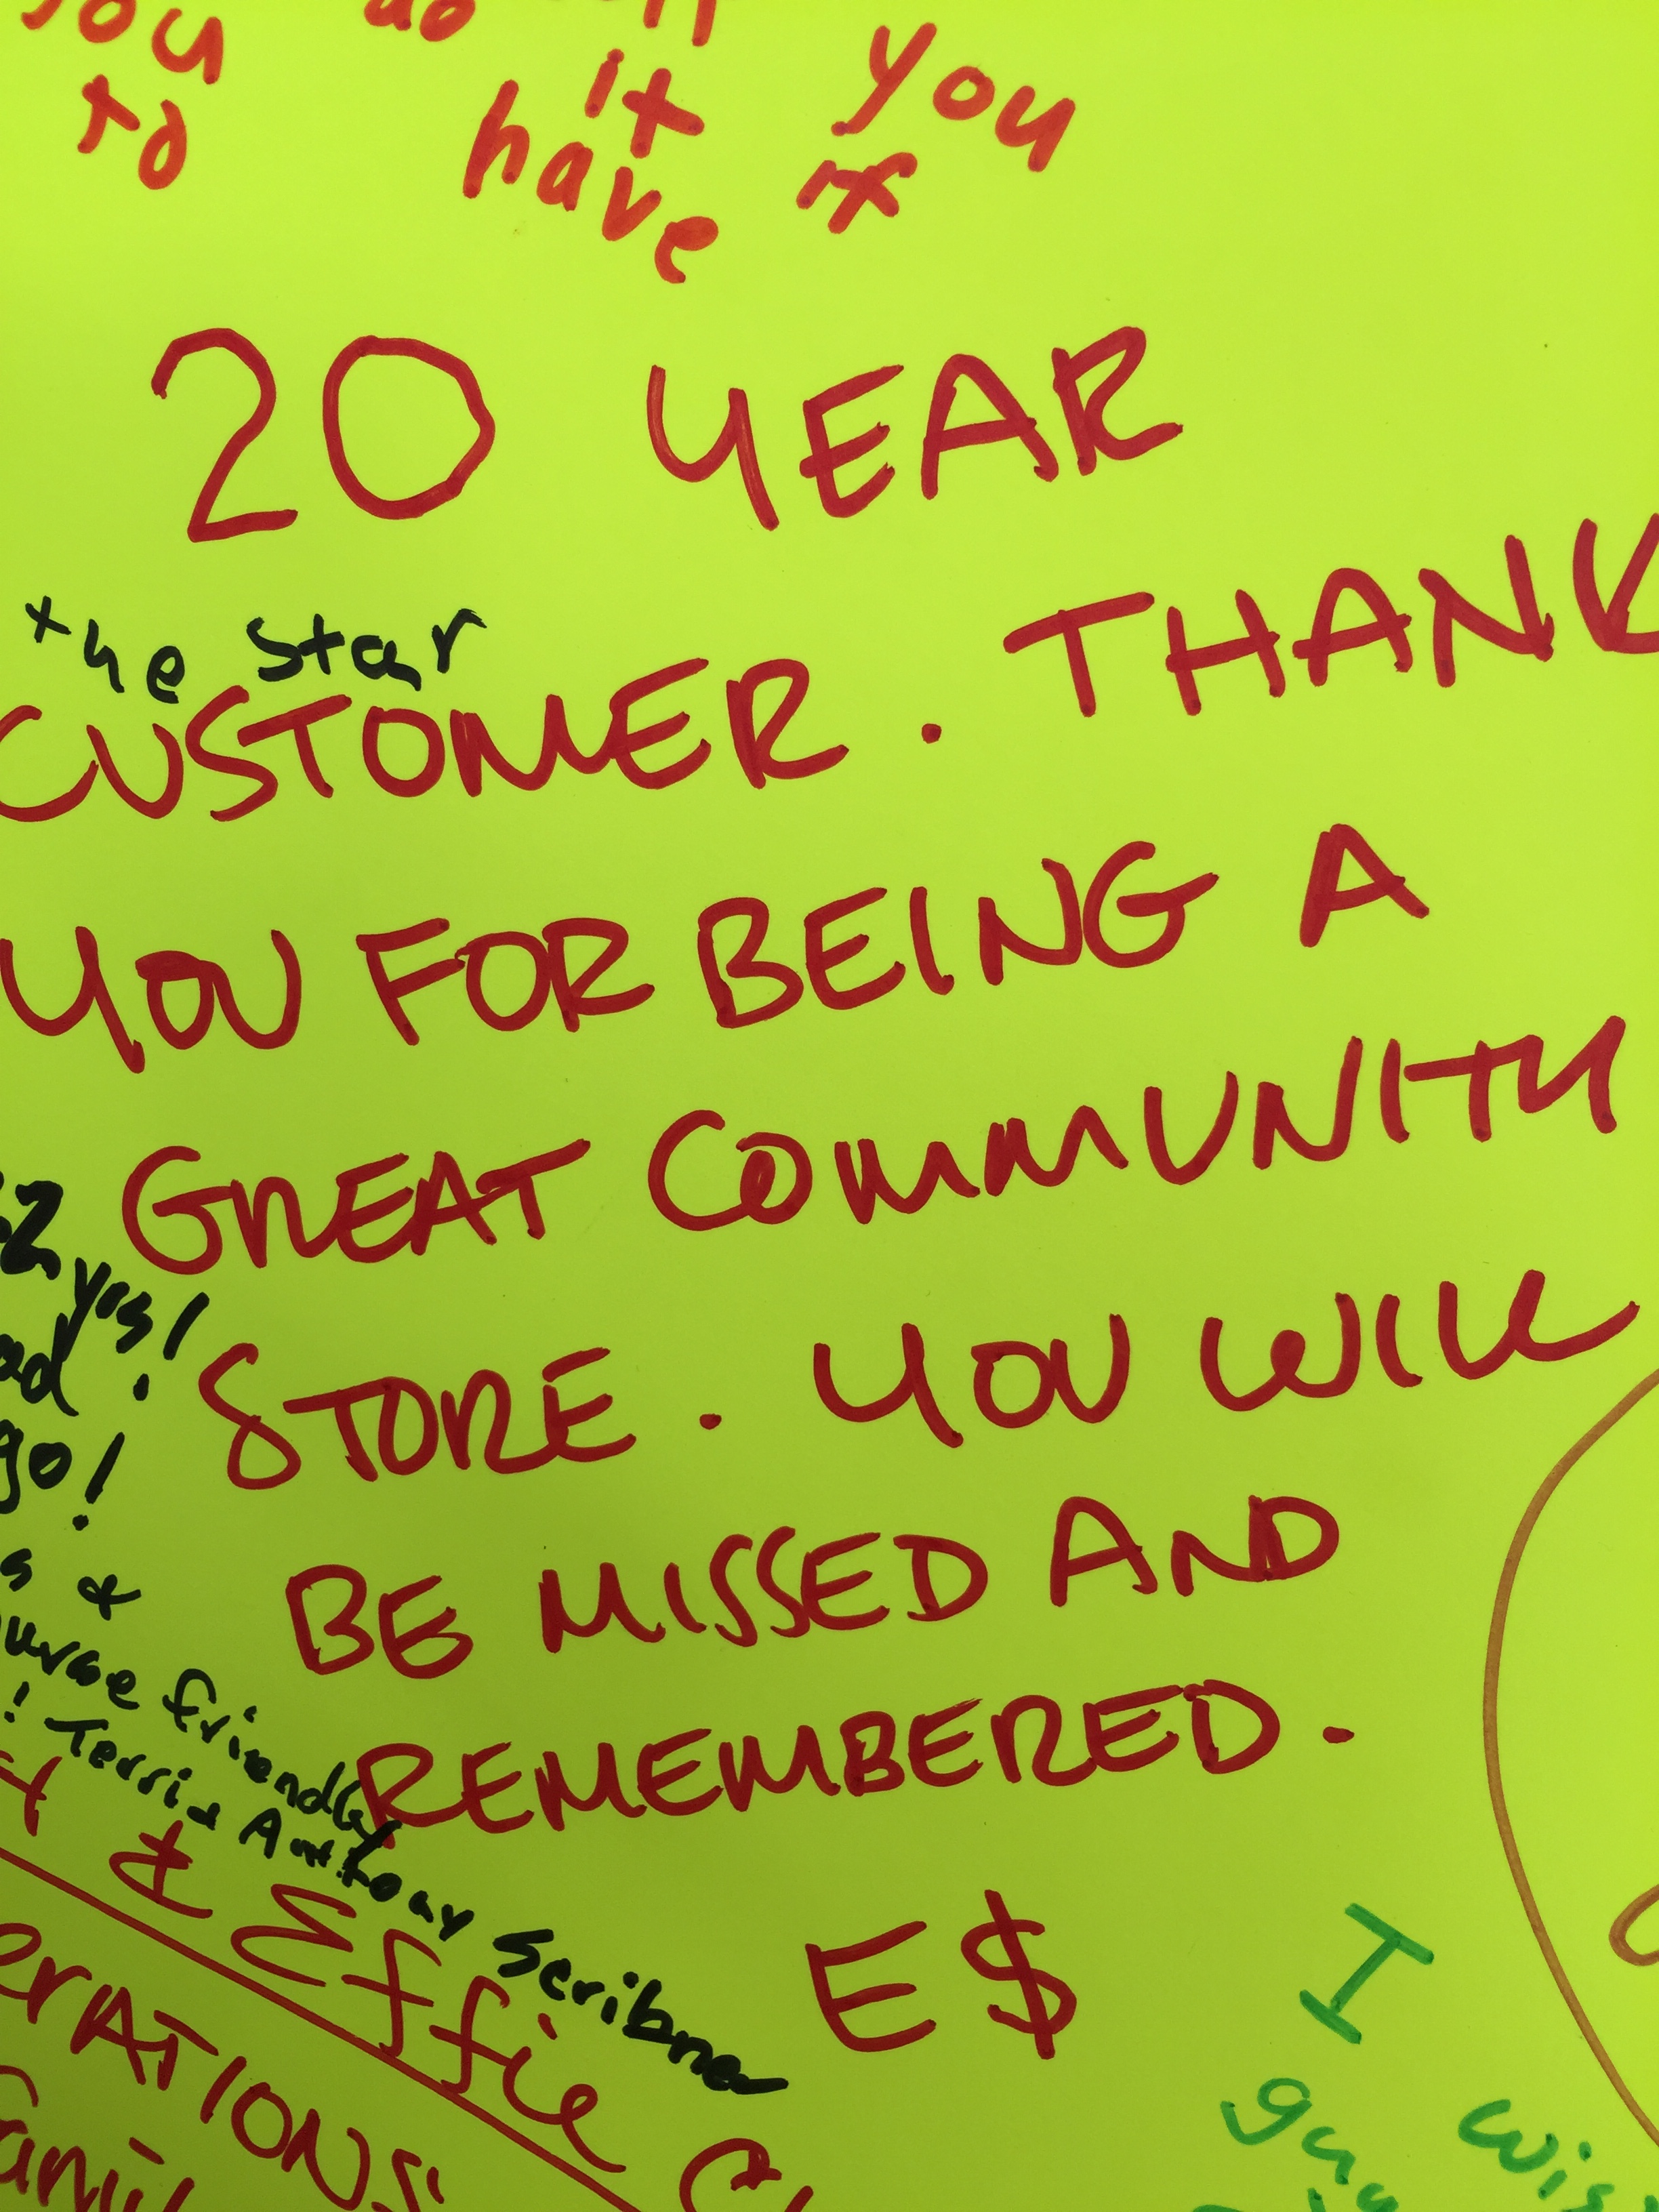 you
it
to
have
if
20 YEAR
the star
CUSTOMER. THANK
YOU FOR BEING A
GREAT COMMUNITY
STORE. YOU WILL
BE MISSED AND
REMEMBERED.
E$
yes!
go!
&
friendly
! Terri & Anthony Scribner
& Effie
I
wis